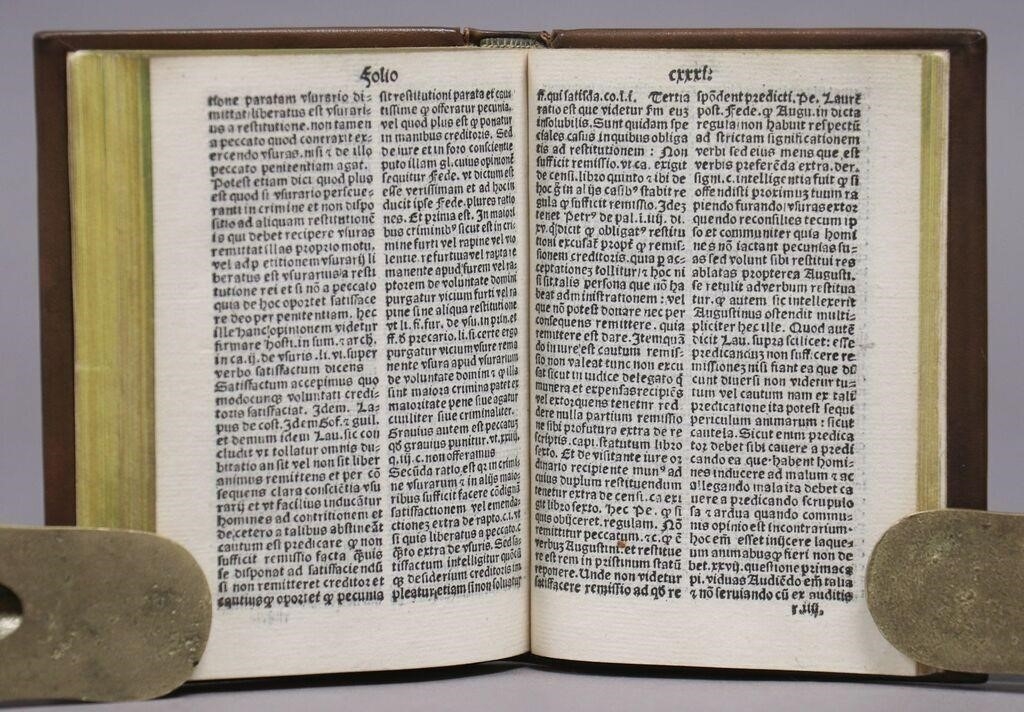 Folio
tione paratam vsurario di-
mittat/liberatus est vsurari-
us a restitutione. non tamen
a peccato quod contraxit ex-
ercendo vsuras. nisi ⁊ de illo
peccato penitentiam agat.
Potest etiam dici quod plus
est quod si vsurario perseue-
ranti in crimine et non dispo
sito ad aliquam restitutionē
is qui debet recipere vsuras
remittat illas proprio motu.
vel ad petitionem vsurarij li
beratus est vsurarius/a resti
tutione rei et si nō a peccato
quia de hoc oportet satisface
re deo per penitentiam. hec
ille hanc opinionem videtur
firmare Hosti. in sum. ⁊ arch.
in ca. ij. de vsuris. li. vi. super
verbo satisfactum dicens
Satisfactum accipimus quo
modocunqꝫ voluntati credi-
toris satisfaciat. Idem. La-
pus de cost. Idem Gof. ⁊ guil.
et demum idem Lau. sic con
cludit vt tollatur omnis du-
bitatio an sit vel non sit liber
animus remittens et per cō
sequens clara conscientia vsu
rarij et vt facilius inducātur
homines ad contritionem et
de cetero a talibus abstineāt
cautum est predicare ꝙ non
sufficit remissio facta quis
se disponat ad satisfaciendū
si non remitteret creditor et
cautiusqꝫ oportet ꝙ pecunia
sit restitutioni parata et caut
tissime ꝙ offeratur pecunia.
vel quod plus est ꝙ ponatur
in manibus creditoris. Sed
de iure et in foro conscientie
puto illam gl. cuius opinionē
sequitur Fede. vt dictum est
esse verissimam et ad hoc in
ducit ipse Fede. plures ratio
nes. Et prima est. In maiori
bus criminibꝰ sicut est in cri-
mine furti vel rapine vel vio
lentie. re furtiua vel rapta re
manente apud furem vel ra-
ptorem de voluntate domini
purgatur vicium furti vel ra
pine sine aliqua restitutione
vt li. fi. fur. de vsu. in prin. et
ff. de precario. li. si certe ergo
purgatur vicium vsure rema
nente vsura apud vsurarium
de voluntate domini ⁊ ꝙ illa
sint maiora crimina patet ex
maioritate pene siue agatur
ciuiliter siue criminaliter.
Grauius autem est peccatum
qd grauius punitur. vt. xxiiij.
q. iij. c. non offeramus
Secūda ratio est qꝛ in crimi
ne vsurarum ⁊ in alijs maio
ribus sufficit facere cōdignā
satisfactionem vel emenda-
ctionem extra de rapto. c. i. vt
sio quis liberatus a peccato. c
qto extra de vsuris. Sed sa-
tisfactum intelligitur quoci
qꝫ desiderium creditoris im
pleatur. etiam si non soluatur
cxxxi.
ff. qui satisda. co. l. i. Tertia
ratio est que videtur fm eum
insolubilis. Sunt quidam spe
ciales casus in quibus obliga
tis ad restitutionem: Non
sufficit remissio. vt ca. exigit
de censi. libro quinto ⁊ ibi de
hoc g̃ in alijs casibꝰ stabit re
gula ꝙ sufficit remissio. Idez
tenet Petrꝰ de pal. i. iiij. di.
xv. q. dicit ꝙ obligatꝰ restitu
tioni excusat̃ propt̃ ꝙ remis-
sionem creditoris. quia per ac-
ceptationez tollitur/⁊ hoc ni
si sit talis persona que nō ha
beat administrationem: vel
que nō potest donare nec per
consequens remittere. quia
remittere est dare. Item quā
do in iure est cautum remis-
sio non valeat tunc non excu
sat sicut in iudice delegato q̄
munera et expensas recipiēs
vel extorquens tenetur red
dere nulla partium remissio
ne sibi profutura extra de re
scriptis. capi. statutum libro
sexto. Et de visitante iure or
dinario recipiente munꝰ ad
cuius duplum restituendum
tenetur extra de censi. ca. exi
git libro sexto. Hec Pe. ꝙ si
quis obijceret. regulam. Nō
remittitur peccatum. ⁊c. ꝙ ē
verbuꝫ Augustini. et restitue
re est rem in pristinum statū
reponere. Unde non videtur
satisfacere remissio ad qd re
spōdent predicti. Pe. Laurē
post. Fede. ꝙ Augu. in dicta
regula/non habuit respectū
ad strictam significationem
verbi sed eius mens que est
verbis preferēda extra. der.
signi. c. intelligentia fuit ꝙ si
offendisti proximuꝫ tuum ra
piendo furando/vsuras extor
quendo reconsilies tecum ip
so et communiter quia homi
nes nō iactant pecunias su-
as sed volunt sibi restitui res
ablatas propterea Augusti.
se retulit ad verbum restitua
tur. ꝙ autem sic intellexerit
Augustinus ostendit multi-
pliciter hec ille. Quod autē
dicit Lau. supra scilicet: esse
predicanduꝫ non sufficere re
missionez nisi fiant ea que di
cunt diuersi non videtur tu-
tum vel cautum nam ex tali
predicatione ita potest sequi
periculum animarum: sicut
cautela. Sicut enim predica
tor debet sibi cauere a predi
cando ea que habent homi-
nes inducere ad malum ⁊ ac
allegando mala ita debet ca
uere a predicando scrupulo
sa ⁊ ardua quando commu-
nis opinio est incontrarium.
hoc em̄ esset inijcere laque-
um animabusqꝫ fieri non de
bet. xxvij. questione primaca
pi. viduas Audiēdo em̄ talia
⁊ nō seruiando cū ex auditis
r. iij.